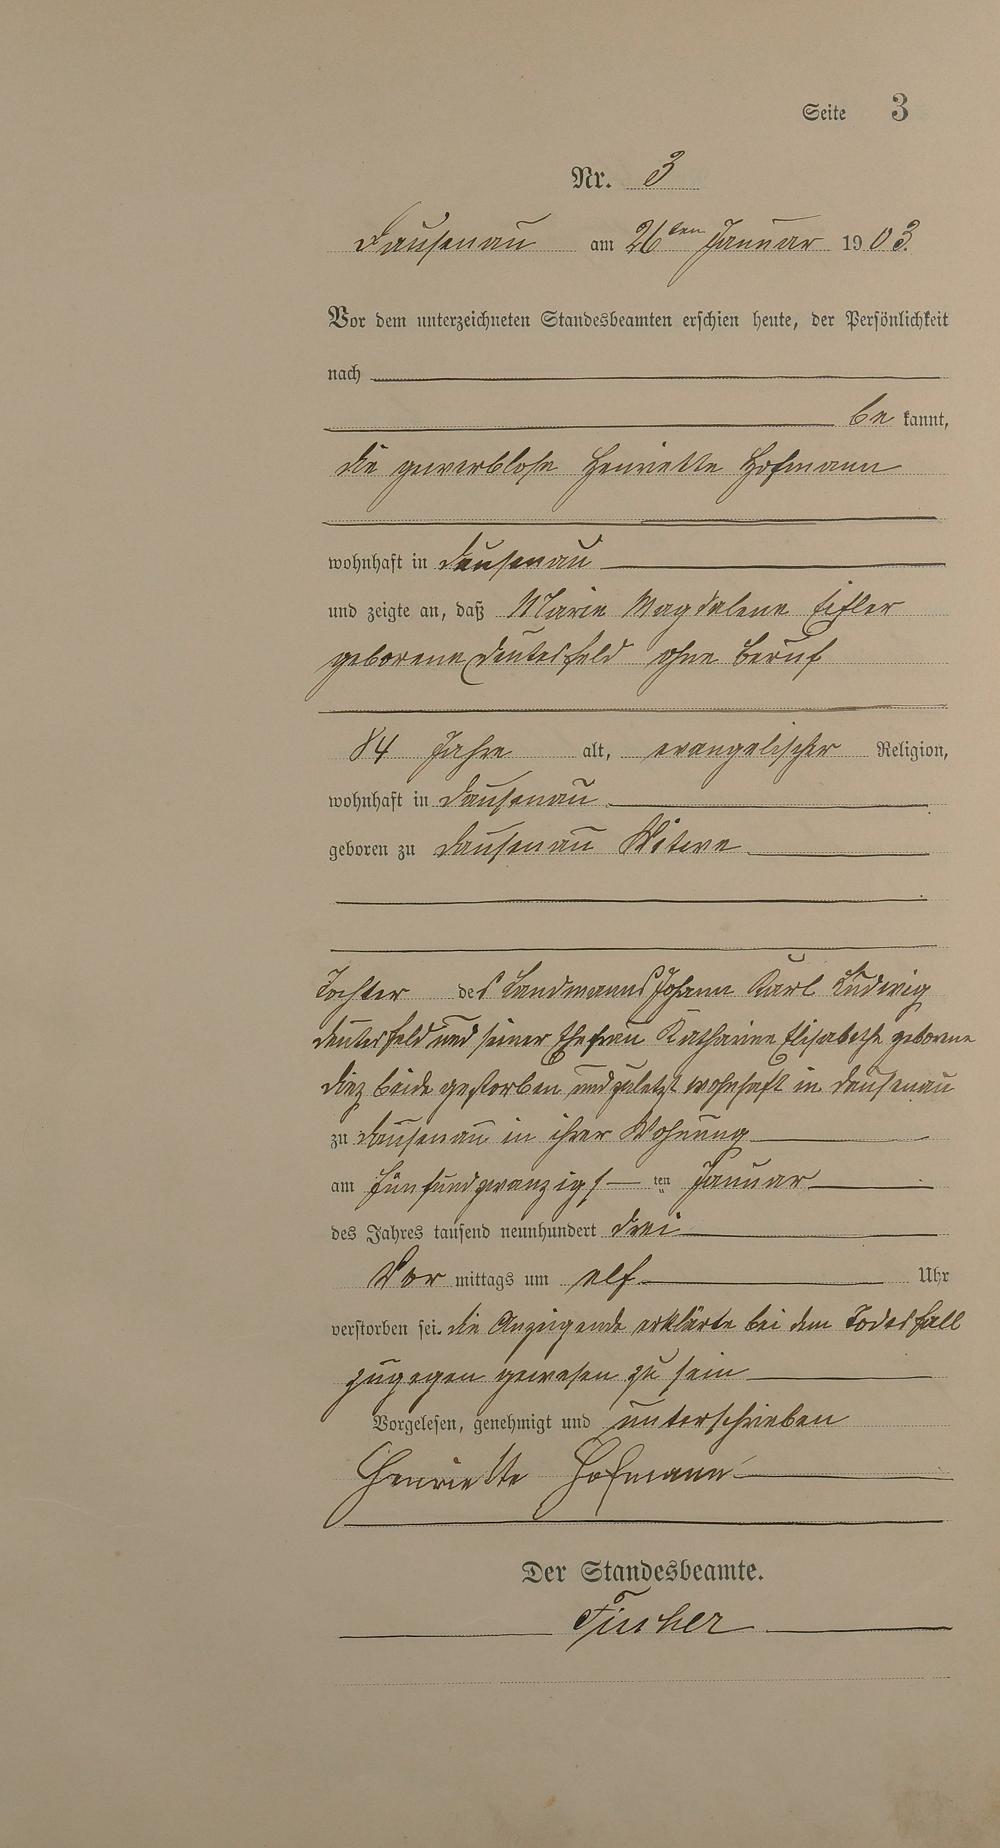 Seite 3
Nr. 3
Dausenau am 26ten Januar 1903.
Vor dem unterzeichneten Standesbeamten erschien heute, der Persönlichkeit
nach
be kannt,
die gewerblose Henriette Hofmann
wohnhaft in Dausenau
und zeigte an, daß Marie Magdalene
geborene Deutesfeld ohne Beruf
84 Jahre alt, evangelischer Religion,
wohnhaft in Dausenau
geboren zu Dausenau Witwe
Tochter des Landmanns Johann Karl Ludwig
Deutesfeld und seiner Ehefrau Katharine Elisabethe geborene
Diez beide gestorben und zuletzt wohnhaft in Dausenau
zu Dausenau in ihrer Wohnung
am fünfundzwanzigs ten Januar
des Jahres tausend neunhundert drei
Vor mittags um elf Uhr
verstorben sei. die Anzeigende erklärte bei dem Todesfall
zugegen gewesen zu sein
Vorgelesen, genehmigt und unterschrieben
Henriette Hofmann
Der Standesbeamte.